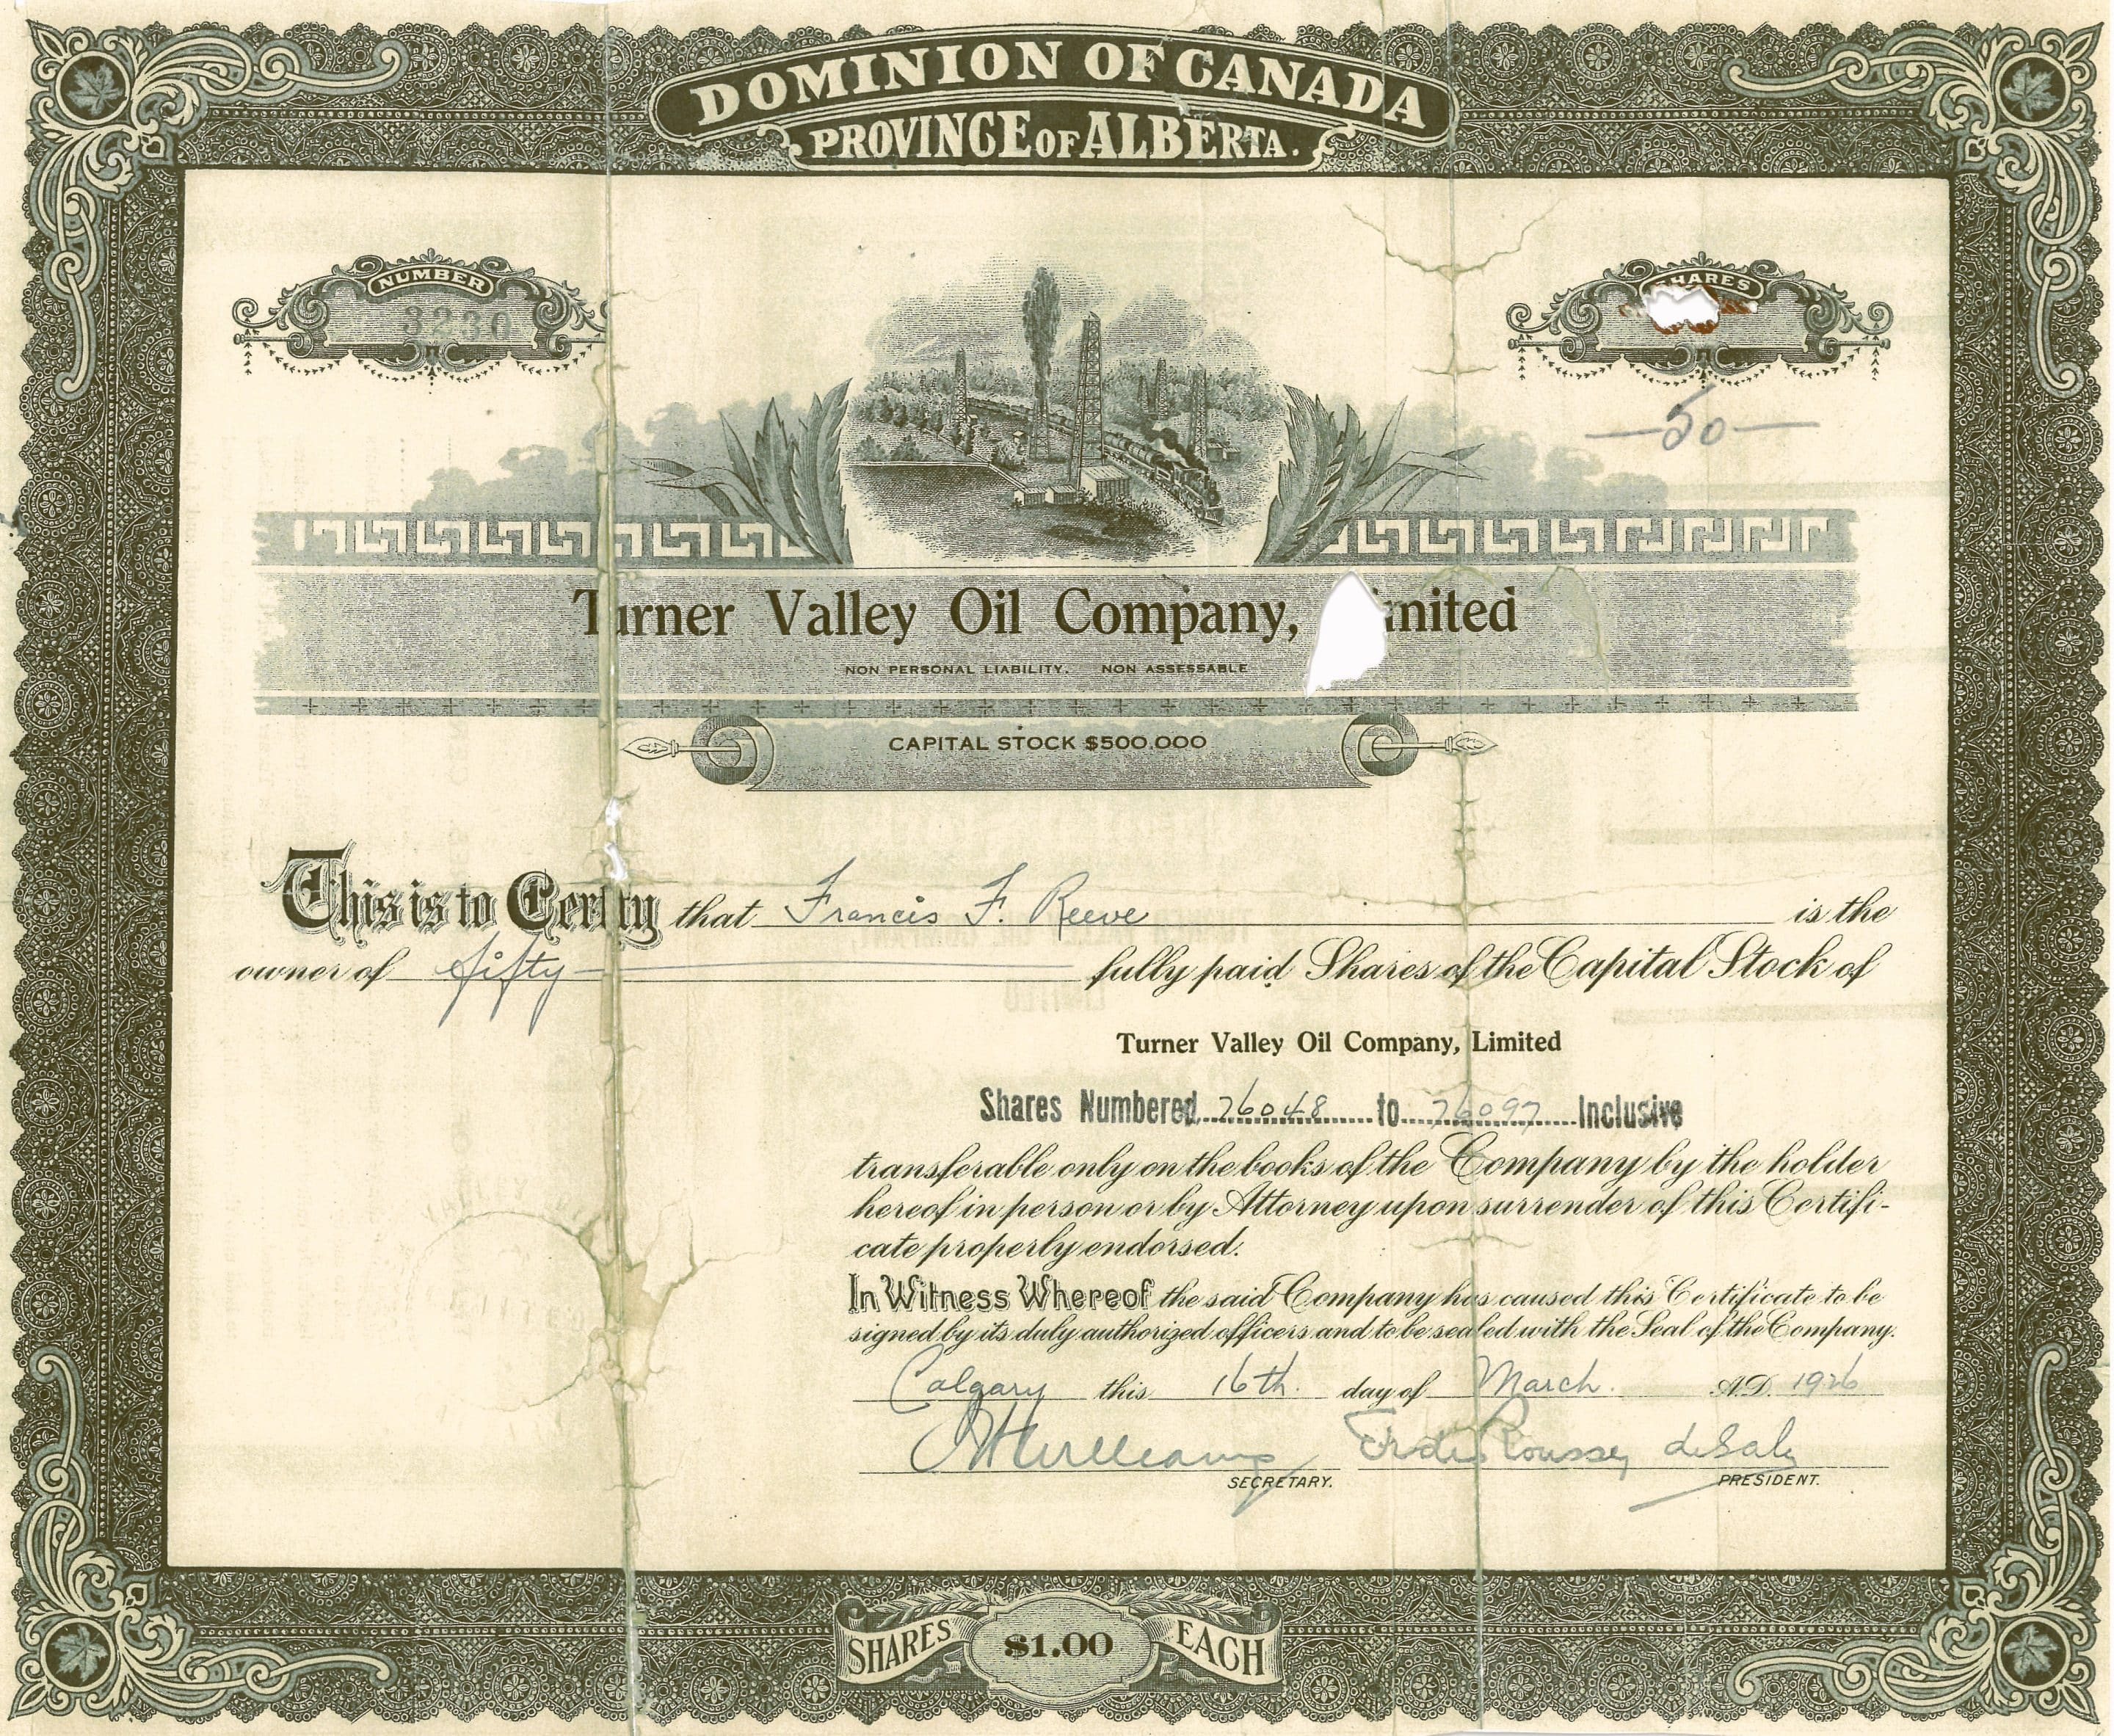 DOMINION OF CANADA
PROVINCE OF ALBERTA.
NUMBER
3230
SHARES
—50—
Turner Valley Oil Company, Limited
NON PERSONAL LIABILITY. NON ASSESSABLE
CAPITAL STOCK $500.000
This is to Certify that Francis F. Reeve is the
owner of fifty fully paid Shares of the Capital Stock of
Turner Valley Oil Company, Limited
Shares Numbered 76048 to 76097 Inclusive
transferable only on the books of the Company by the holder
hereof in person or by Attorney upon surrender of this Certifi-
cate properly endorsed.
In Witness Whereof the said Company has caused this Certificate to be
signed by its duly authorized officers and to be sealed with the Seal of the Company.
Calgary this 16th. day of March. A.D. 1926
SECRETARY.
PRESIDENT.
SHARES $1.00 EACH